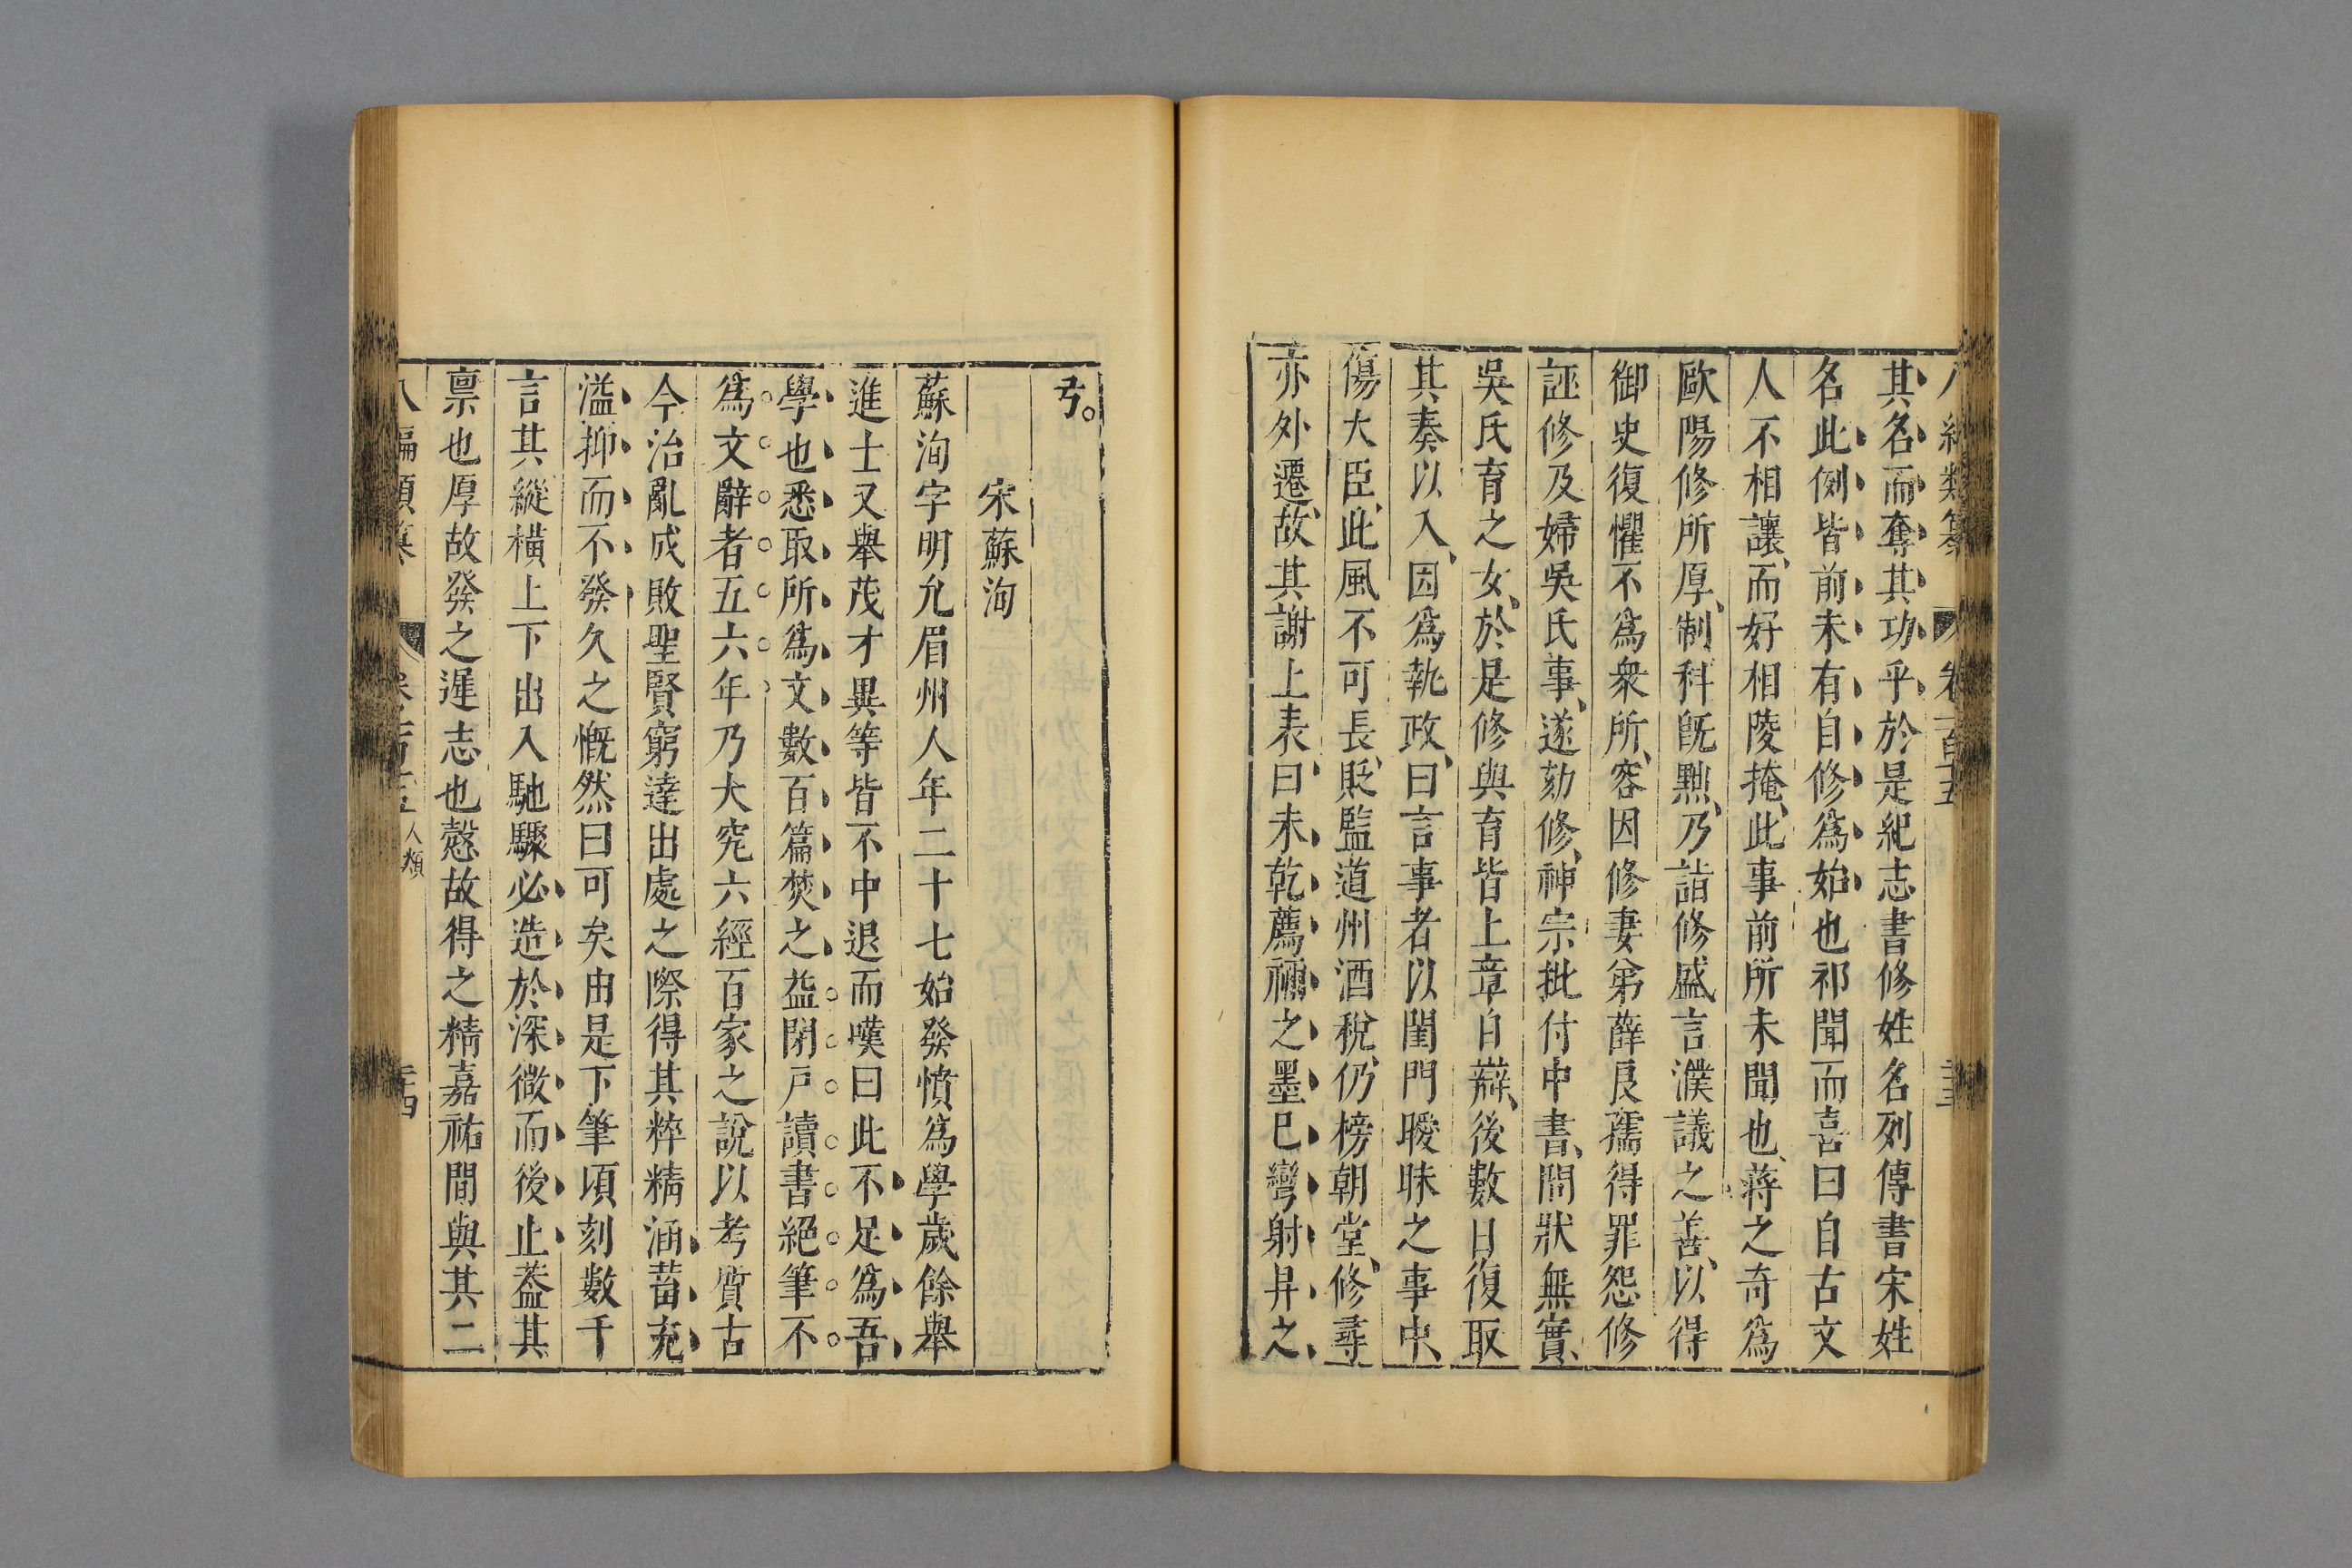 其名而奪其功乎於是紀志書修姓名列傳書宋姓
名此例皆前未有自修爲始也祁聞而喜曰自古文
人不相讓而好相陵掩此事前所未聞也蔣之奇爲
歐陽修所厚制科旣黜乃詣修盛言濮議之善以得
御史復懼不爲衆所容因修妻弟薛良孺得罪怨修
誣修及婦吳氏事遂劾修神宗批付中書問狀無實
吳氏育之女於是修與育皆上章自辯後數日復取
其奏以入因爲執政曰言事者以閨門曖昧之事中
傷大臣此風不可長貶監道州酒稅仍榜朝堂修尋
亦外遷故其謝上表曰未乾薦禰之墨已彎射羿之
弓
宋蘇洵
蘇洵字明允眉州人年二十七始發憤爲學歲餘舉
進士又舉茂才異等皆不中退而嘆曰此不足爲吾
學也悉取所爲文數百篇焚之益閉戶讀書絕筆不
爲文辭者五六年乃大究六經百家之說以考質古
今治亂成敗聖賢窮達出處之際得其粹精涵蓄充
溢抑而不發久之慨然曰可矣由是下筆頃刻數千
言其縱橫上下出入馳驟必造於深微而後止葢其
禀也厚故發之遲志也愨故得之精嘉祐間與其二
八編類纂 卷一百五 人類 二十四